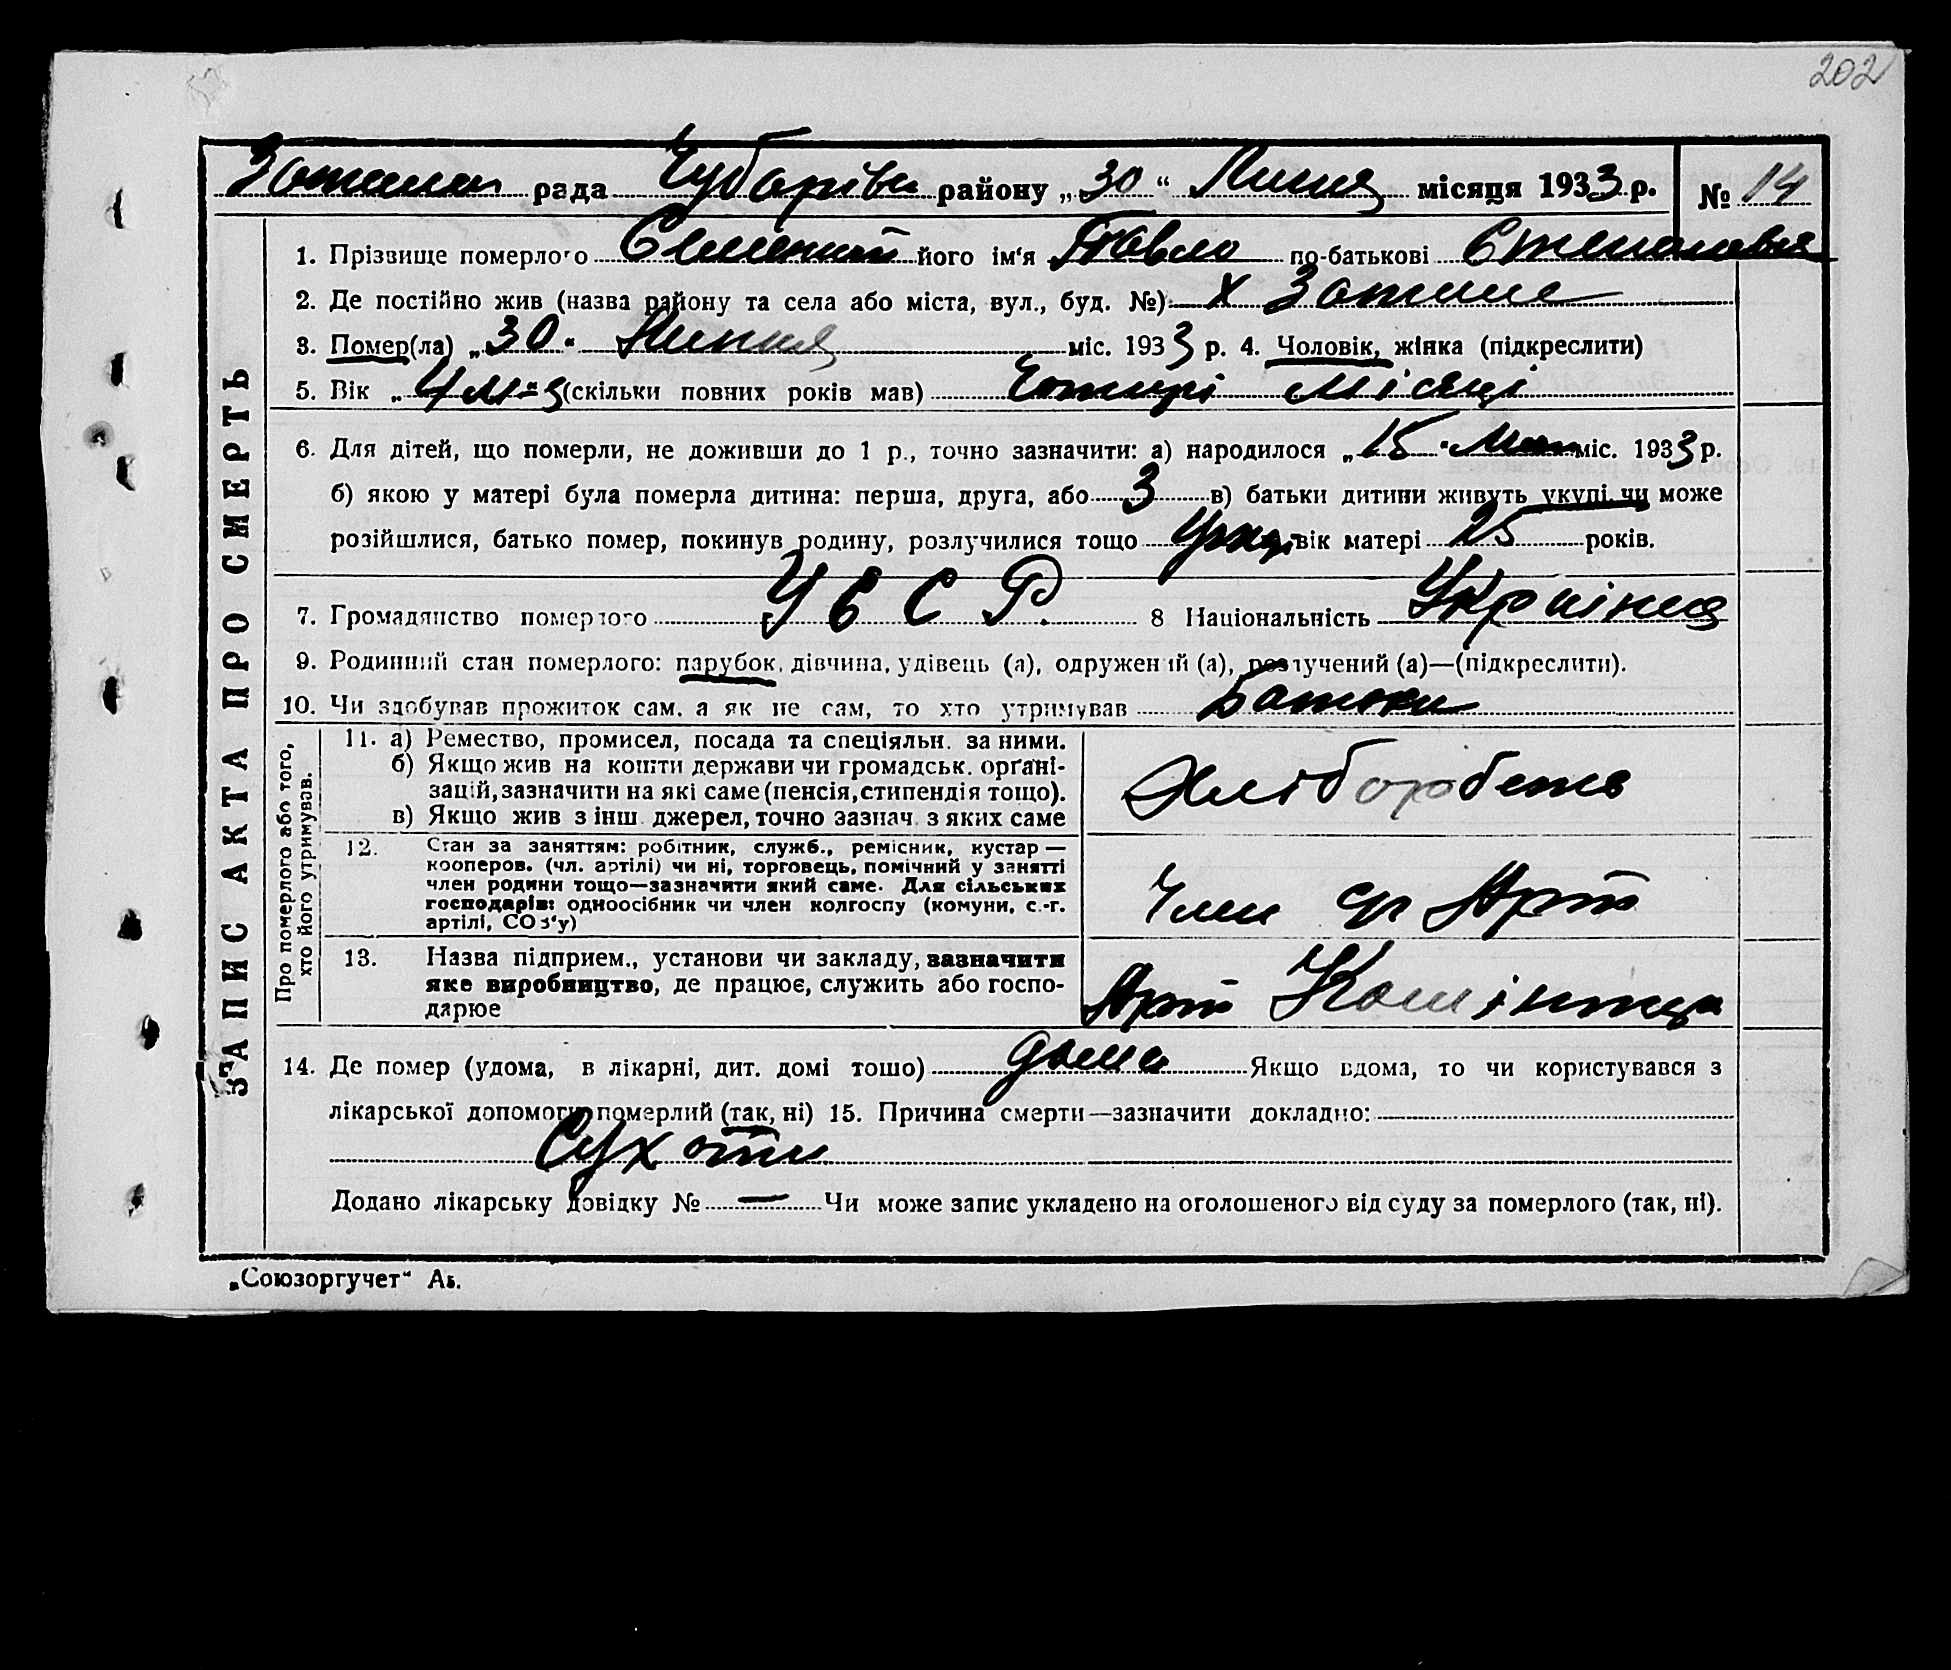 202
рада Чубарівск району „30“ Липня місяця 1933 р. № 14
ЗАПИС АКТА ПРО СМЕРТЬ
1. Прізвище померлого його ім'я Павло по-батькові Степанович
2. Де постійно жив (назва району та села або міста, вул., буд. №) х Затише
3. Помер(ла) „30" Липня міс. 1933 р. 4. Чоловік, жінка (підкреслити)
5. Вік „4 м-ця (скільки повних років мав) Чотирі місяці
6. Для дітей, що померли, не доживши до 1 р., точно зазначити: а) народилося „15" міс. 1933 р.
б) якою у матері була померла дитина: перша, друга, або 3 в) батьки дитини живуть укупі, чи може
розійшлися, батько помер, покинув родину, розлучилися тощо вік матері 25 років.
7. Громадянство померлого УССР. 8 Національність Украінця
9. Родинний стан померлого: парубок, дівчина, удівець (а), одружений (а), розлучений (а)—(підкреслити).
10. Чи здобував прожиток сам, а як не сам, то хто утримував Батьки
Про померлого або того, хто його утримував.
11. а) Ремество, промисел, посада та спеціяльн. за ними.
б) Якщо жив на кошти держави чи громадськ. орґані-
зацій, зазначити на які саме (пенсія, стипендія тощо).
в) Якщо жив з інш. джерел, точно зазнач. з яких саме
Хлібороbeць
12. Стан за заняттям: робітник, служб., ремісник, кустар —
кооперов. (чл. артілі) чи ні, торговець, помічний у занятті
член родини тощо—зазначити який саме. Для сільських
господарів: одноосібник чи член колгоспу (комуни, с.-г.
артілі, СОЗ'у)
Член Арт
13. Назва підприєм., установи чи закладу, зазначити
яке виробництво, де працює, служить або госпо-
дарює
Арт
14. Де помер (удома, в лікарні, дит. домі тошо) дома Якщо вдома, то чи користувався з
лікарської допомоги померлий (так, ні) 15. Причина смерти—зазначити докладно:
Сухоти
Додано лікарську довідку № — Чи може запис укладено на оголошеного від суду за померлого (так, ні).
„Союзоргучет“